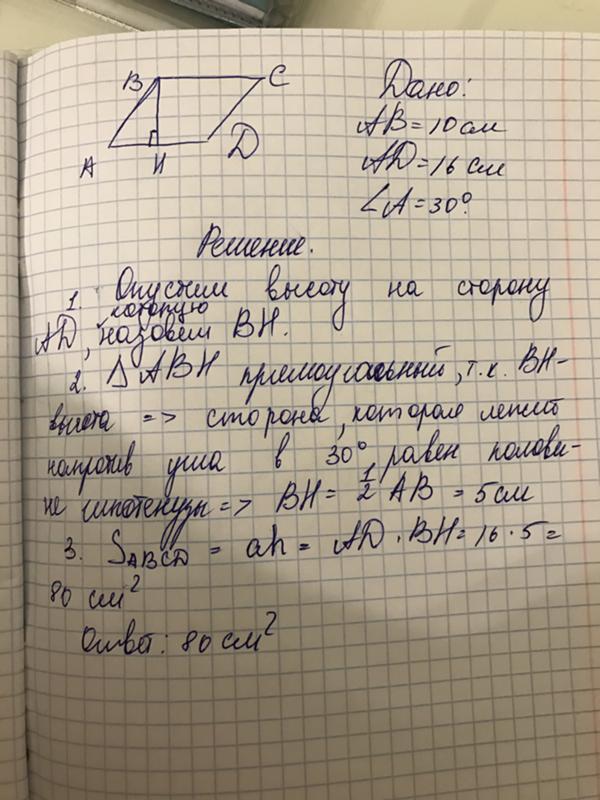 B C
A H D
Дано:
AB = 10 см
AD = 16 см
∠A = 30°
Решение.
1. Опустим высоту на сторону
AD, которую назовем BH.
2. △ABH прямоугольный, т.к. BH-
высота => сторона, которая лежит
напротив угла в 30° равен полови-
не гипотенузы => BH = 1/2 AB = 5 см
3. SABCD = ah = AD · BH = 16 · 5 =
80 см²
Ответ: 80 см²